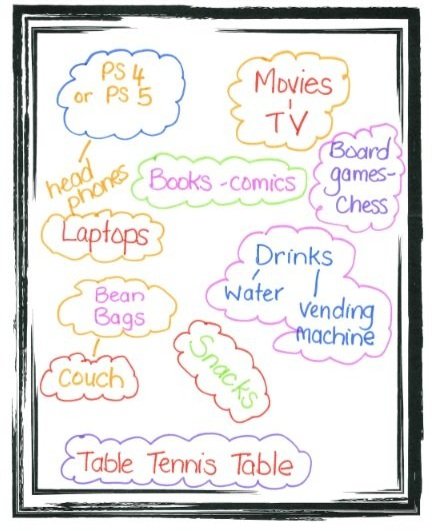 PS 4
or PS 5
Movies
TV
head
phones
Books - comics
Board
games-
Chess
Laptops
Drinks
water
vending
machine
Bean
Bags
Couch
Snacks
Table Tennis Table